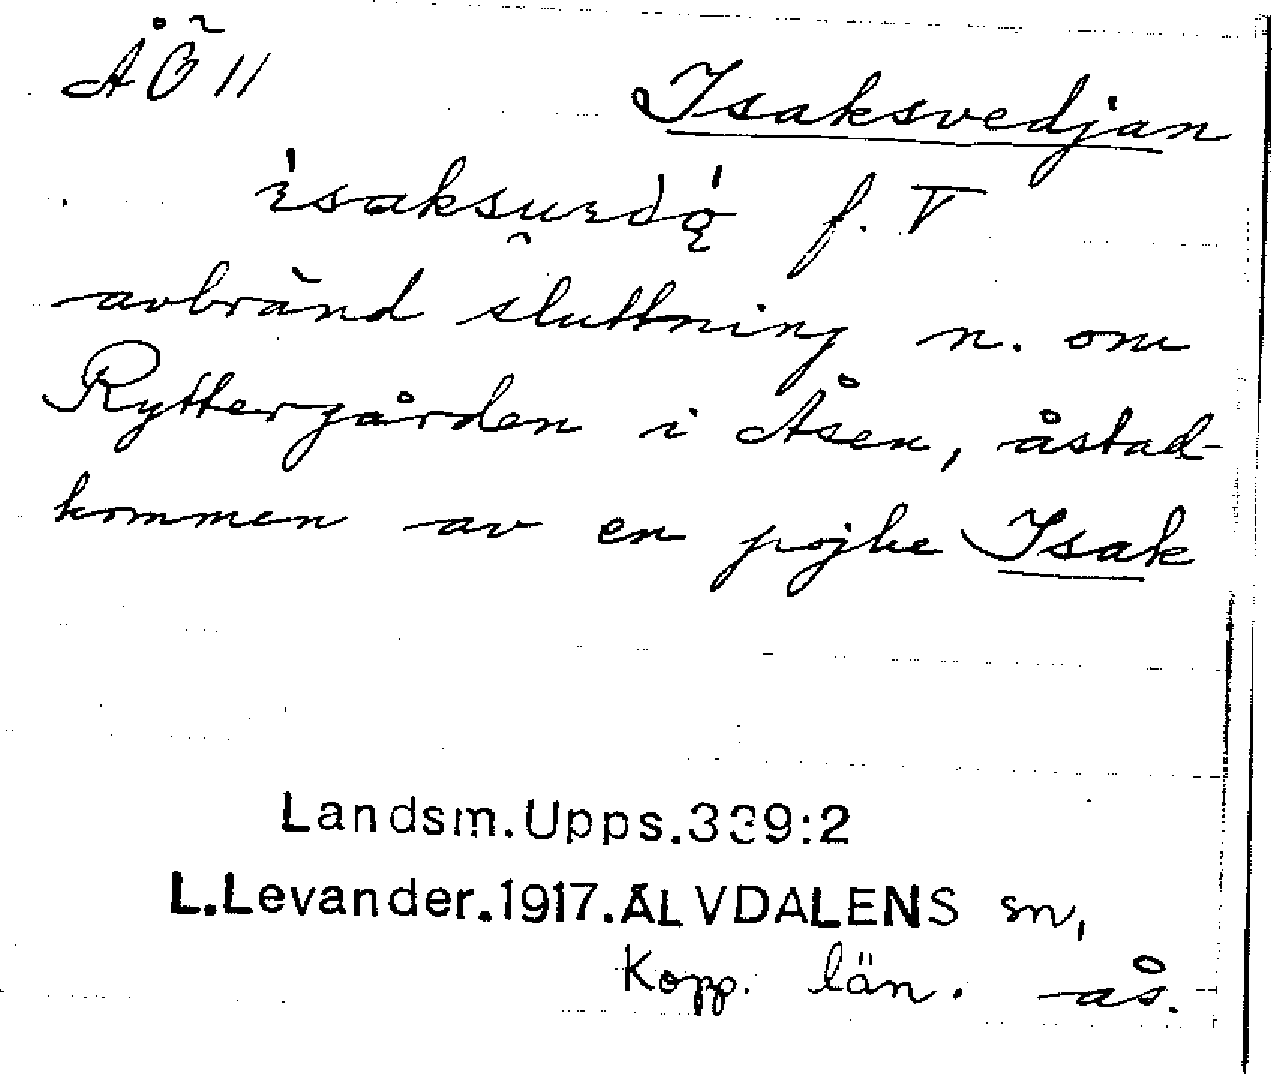 ÅÖ 11
Isaksvedjan
f. V
avbränd sluttning n. om
Ryttergården i Åsen, åstad-
kommen av en pojke Isak
Landsm.Upps.339:2
L.Levander.1917.ÄLVDALENS sn,
Kopp. län. ås.